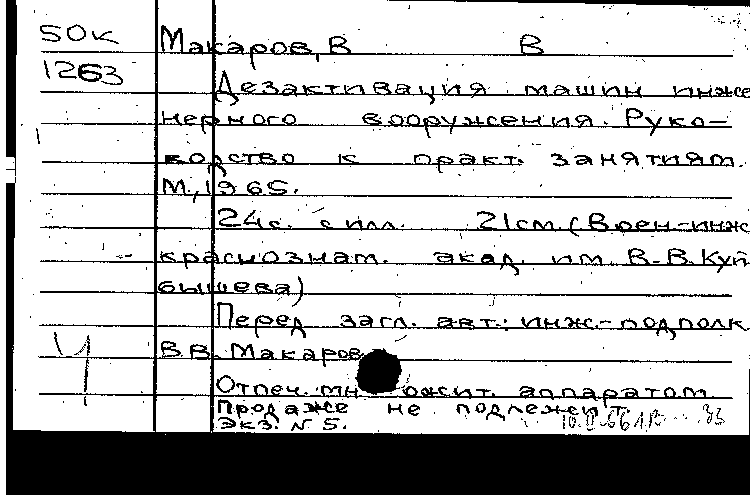 50К Макаров, В В
1263
Дезактивация машин инже
нерного вооружения. Руко-
водство к практ. занятиям.
М., 1965.
24с. с илл. 21см. (Воен-инж
краснознам. акад. им. В.В. Куй
бышева)
Перед загл. авт.: инж.-подполк
В.В. Макаров
Отпеч. мн ожит. аппаратом
Продаже не подлежит.
Экз. N 5.